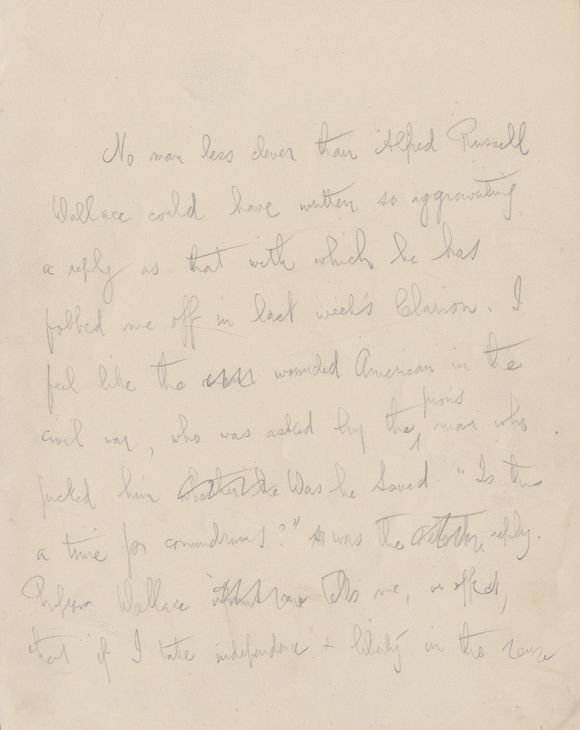 No man less clever than Alfred Russell
Wallace could have written so aggravating
a reply as that with which he has
fobbed me off in last week's Clarion. I
feel like the wounded American in the
civil war, who was asked by the pious man who
picked him Was he Saved. "Is this
a time for conundrums?" was the reply.
Professor Wallace tells me, in effect,
that if I take independence + liberty in the sense